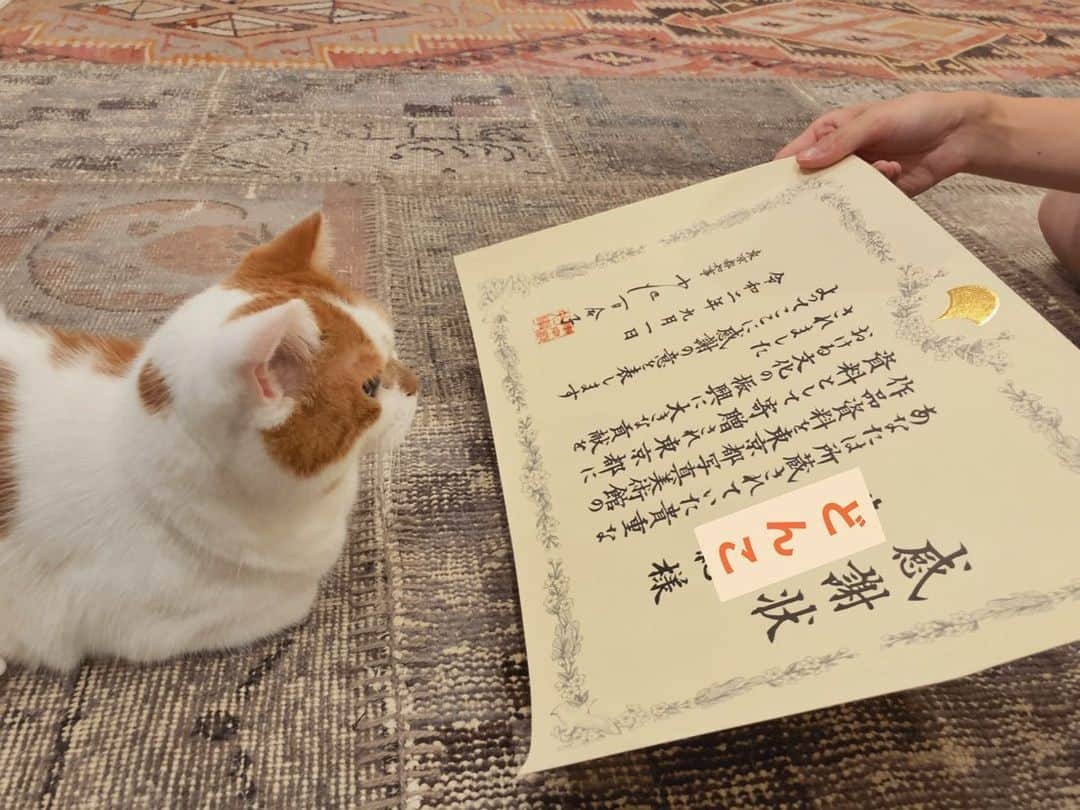 感謝状
どんこ
様
あなたは所蔵されていた貴重な
作品資料を東京都写真美術館の
資料として寄贈され東京都に
おける文化の振興に大きな貢献を
されました
よってここに感謝の意を表します
令和二年九月一日
東京都知事 小池百合子